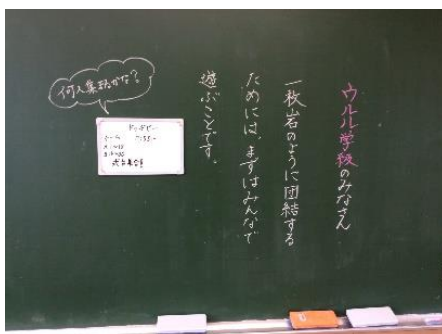 ウルル学級のみなさん
一枚岩のように団結する
ためには、まずはみんなで
遊ぶことです。
何人集まるかな?
ドッヂビー